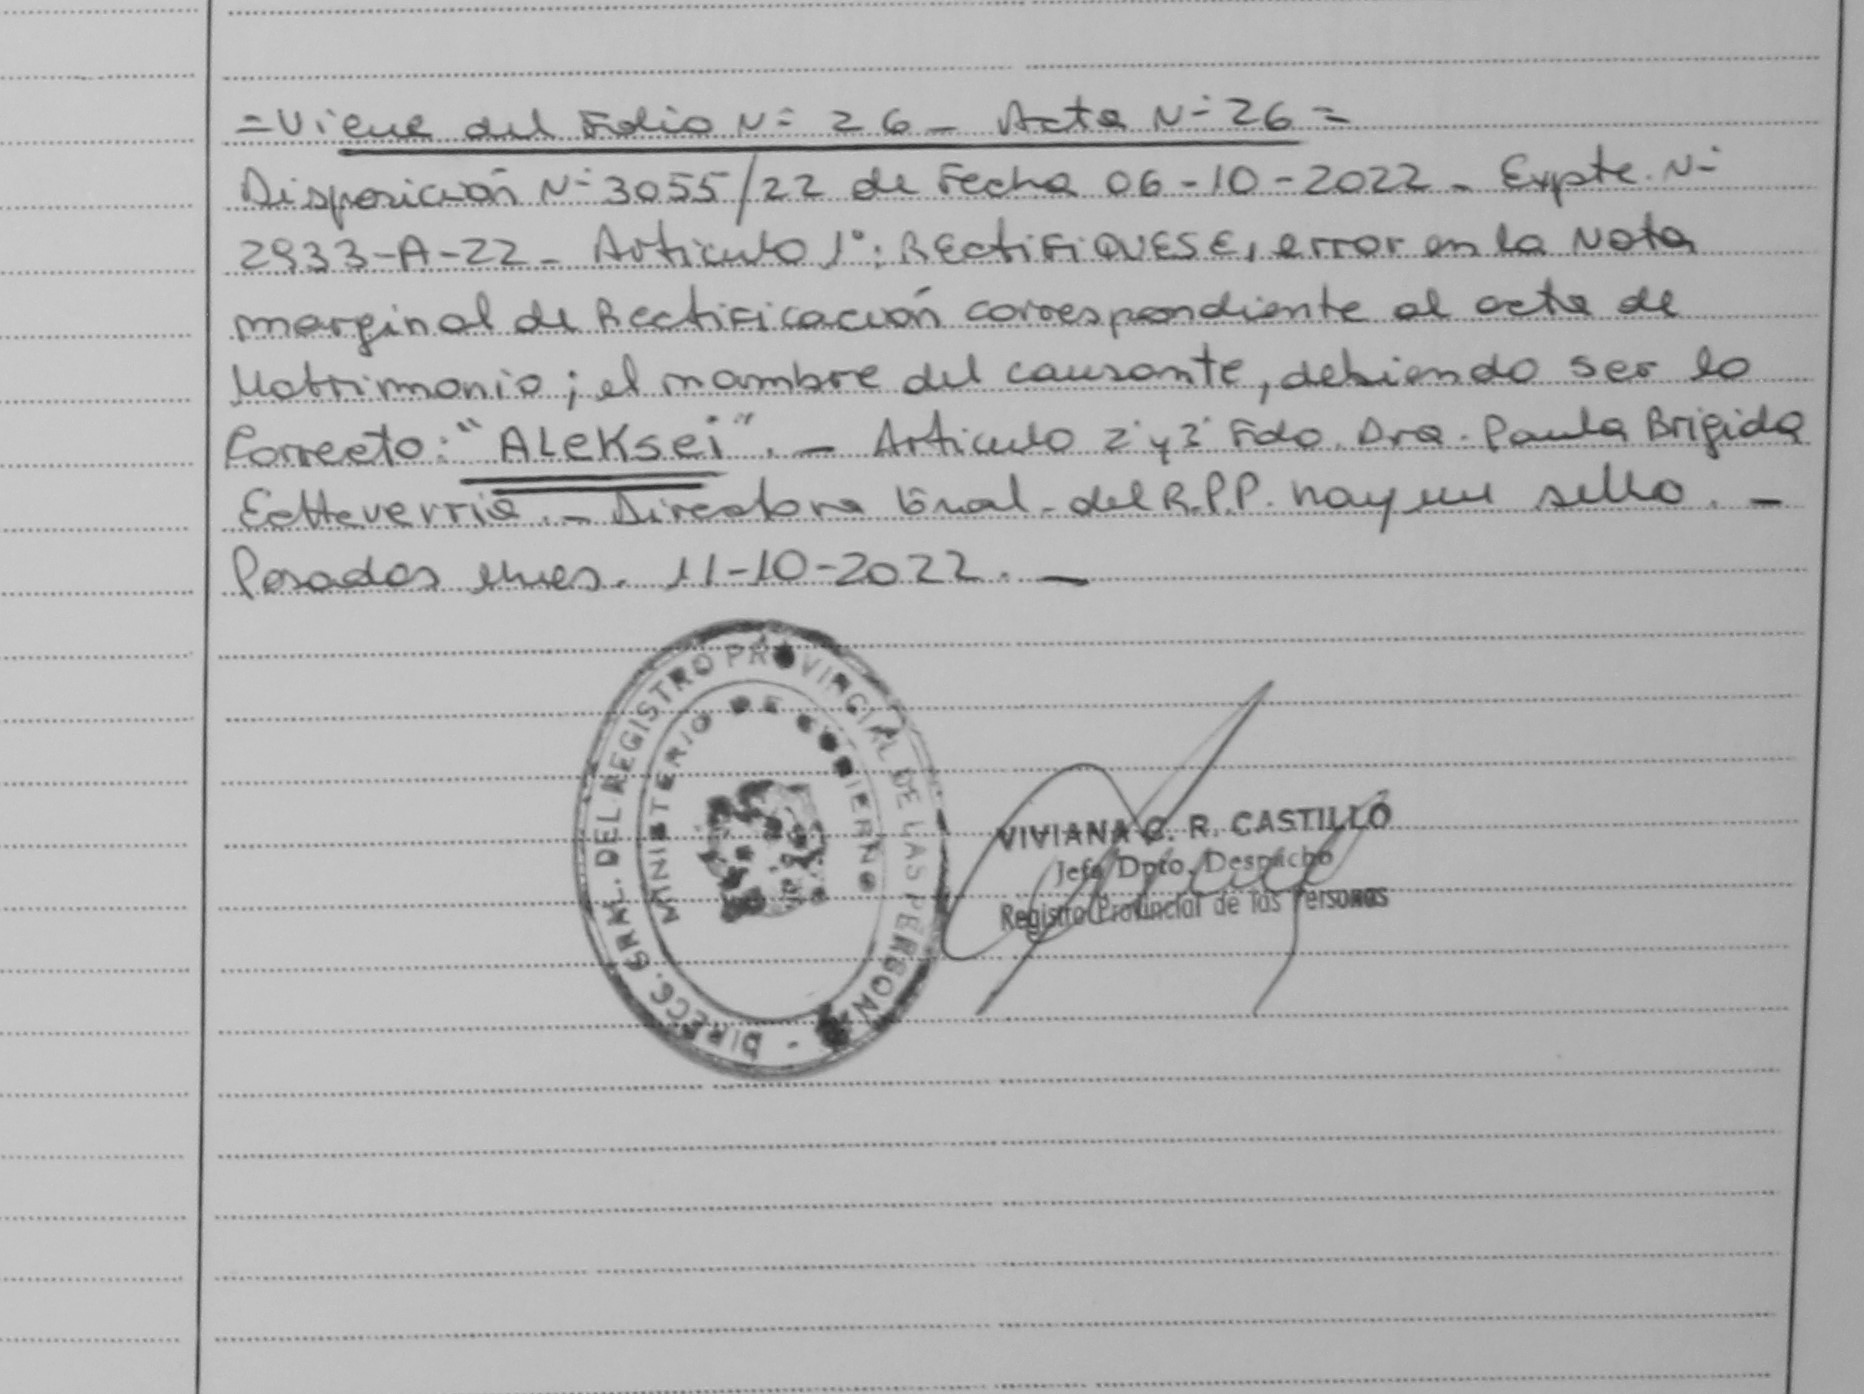 =Viene del Folio N= 26 - Acta N= 26 =
Disposición N= 3055/22 de Fecha 06-10-2022 - Expte. N=
2933-A-22 - Articulo 1°: RECtiFiQUESE, error en la Nota
marginal de Rectificación correspondiente al acta de
Matrimonio; el nombre del causante, debiendo ser lo
Correcto: "ALeKsei". - Articulo 2° y 3° Fdo. Dra. Paula Brigida
Directora Gral. del R.P.P. hay un sello. -
Posadas Mnes. 11-10-2022. -
DIRECC. GRAL. DEL REGISTRO PROVINCIAL DE LAS PERSONAS -
MINISTERIO DE GOBIERNO
VIVIANA C. R. CASTILLO
Jefe Dpto. Despacho
Registro Provincial de las Personas